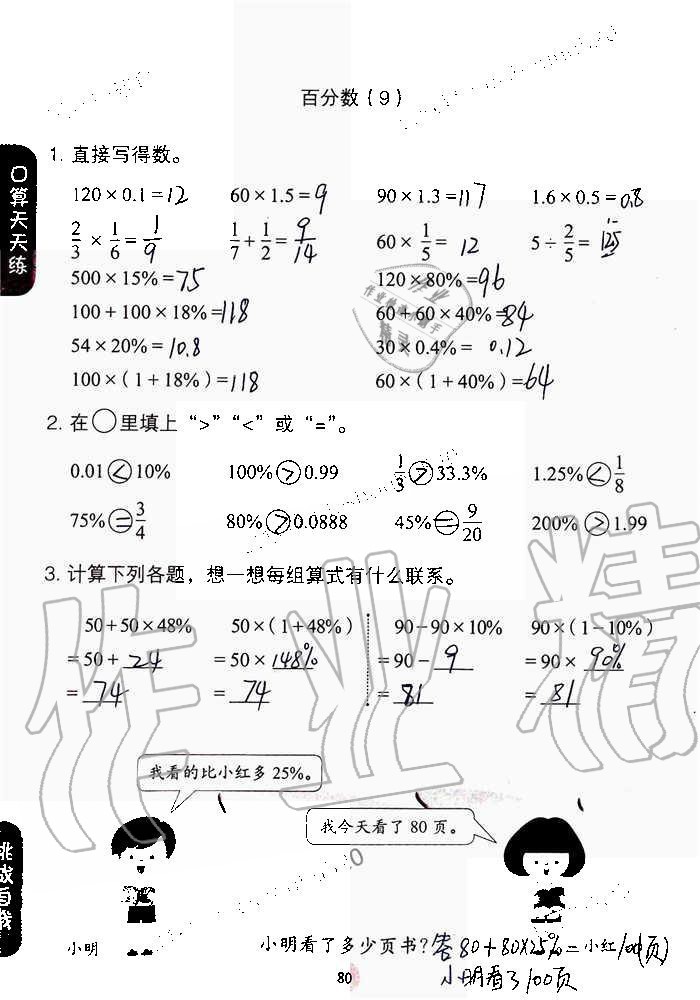 百分数(9)
口算天天练
1. 直接写得数。
120×0.1=12 60×1.5=9 90×1.3=117 1.6×0.5=0.8
2/3×1/6=1/9 1/7+1/2=9/14 60×1/5=12 5÷2/5=
500×15%=75 120×80%=96
100+100×18%=118 60+60×40%=84
54×20%=10.8 30×0.4%=0.12
100×(1+18%)=118 60×(1+40%)=64
2. 在○里填上“>”“<”或“=”。
0.01<10% 100%>0.99 1/3>33.3% 1.25%<1/8
75%=3/4 80%>0.0888 45%=9/20 200%>1.99
3. 计算下列各题，想一想每组算式有什么联系。
50+50×48% 50×(1+48%) 90-90×10% 90×(1-10%)
=50+24 =50×148% =90-9 =90×90%
=74 =74 =81 =81
作业精
我看的比小红多25%。
我今天看了80页。
挑战自我
小明 小明看了多少页书? 答80+80×25%=100(页) 小红
小明看了100页
80